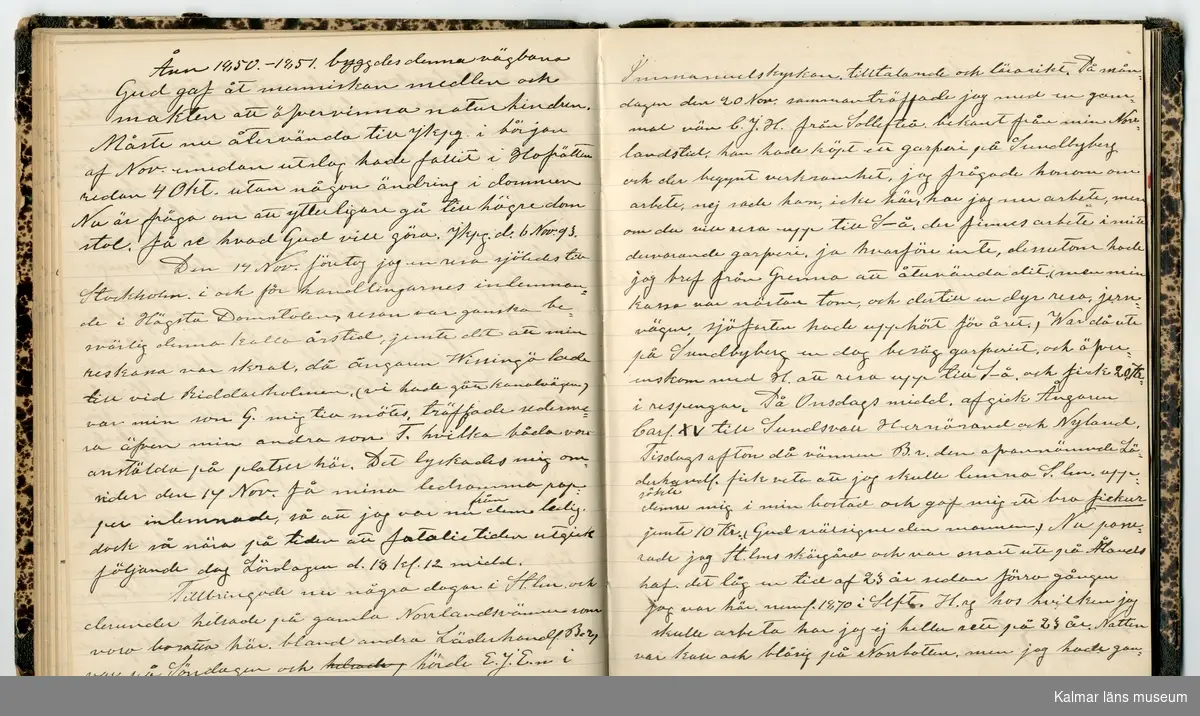 Åren 1850.-1851. byggdes denna vägbana
Gud gaf åt menniskan medlen och
makten att öfvervinna naturhindren.
Måste nu återvända till Jkpg. i början
af Nov. emedan utslag hade fallit i Hofrätten
redan 4 Okt. utan någon ändring i dommen
Nu är fråga om att ytterligare gå till högre dom
stol. få se hvad Gud vill göra. Jkpg. d. 6 Nov. 93.
Den 14 Nov. företog jag en resa sjöledes till
Stockholm. i och för handlingarnes inlemnan-
de i Högsta Domstolen, resan var ganska be-
svärlig denna kalla årstid, jemte det att min
reskassa var skral, då ångaren Wisingsö lade
till vid Riddarholmen, (vi hade gått kanalvägen)
var min son G. mig till mötes, träffade sederme-
ra äfven min andra son T. hvilka båda voro
anstälda på platser här. Det lyckades mig om-
sider den 17 Nov. få mina ledsamma pap-
per inlemnade, så att jag var nu från dem ledig.
dock så nära på tiden att fatalietiden utgick
följande dag Lördagen d. 18 kl. 12 midd.
Tillbringade nu några dagar i Sthm. och
derunder helsade på gamla Norrlandsvänner som
voro bosatta här. bland andra Läderhandl. B-r,
var på Söndagen och helsade, hörde E.J.E-n i
Immanuelskyrkan, tilltalande och lärorikt. På mån-
dagen den 20 Nov. sammanträffade jag med en gam-
mal vän C.J.H. från Sollefteå. bekant från min Norr-
landstid, han hade köpt ett garfveri på Sundbyberg
och der begynt verksamhet, jag frågade honom om
arbete, nej sade han, icke här, har jag nu arbete, men
om du vill resa upp till S-å. der finnes arbete i mitt
derwarande garfveri. ja hvarföre inte, dessutom hade
jag bref från Grenna att återvända dit, (men min
kassa var nästan tom, och dertill en dyr resa, jern-
vägen, sjöfarten hade upphört för året.) War då ute
på Sundbyberg en dag besåg garfveriet, och öfver-
enskom med H. att resa upp till S-å. och fick 20 Kr.
i respengar. På Onsdags midd. afgick Ångaren
Carl XV till Sundsvall Hernösand och Nyland.
Tisdagsafton då vännen B.r. den ofvannämnde Lä-
derhandl. fick veta att jag skulle lemna S.lm. upp
sökte denne mig i min bostad och gaf mig ett bra fickur
jemte 10 Kr. (Gud välsigne den mannen,) Nu passe-
rade jag St.lms skärgård och var snart ute på Ålands
haf. det låg en tid af 23 år sedan förra gången
jag var här, neml. 1870 i Sept. H.g hos hvilken jag
skulle arbeta har jag ej heller sett på 23 år. Natten
var kall och blåsig på Norrbotten, men jag hade gan-
Kalmar läns museum